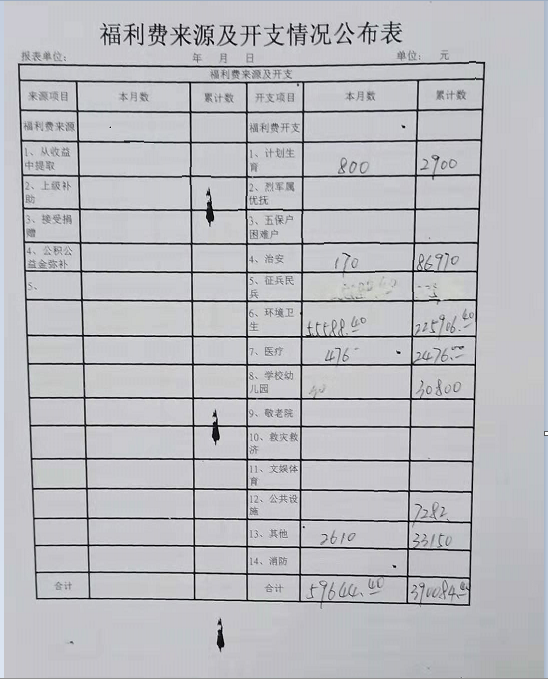 福利费来源及开支情况公布表
报表单位: 年 月 日 单位: 元
福利费来源及开支
来源项目 本月数 累计数 开支项目 本月数 累计数
福利费来源 福利费开支
1、从收益中提取 1、计划生育 800 2900
2、上级补助 2、烈军属优抚
3、接受捐赠 3、五保户困难户
4、公积公益金弥补 4、治安 170 86970
5、 5、征兵民兵
6、环境卫生 55588.40 225906.40
7、医疗 476 2476.00
8、学校幼儿园 30800
9、敬老院
10、救灾救济
11、文娱体育
12、公共设施 7282
13、其他 2610 33150
14、消防
合计 合计 59644.40 390084.40